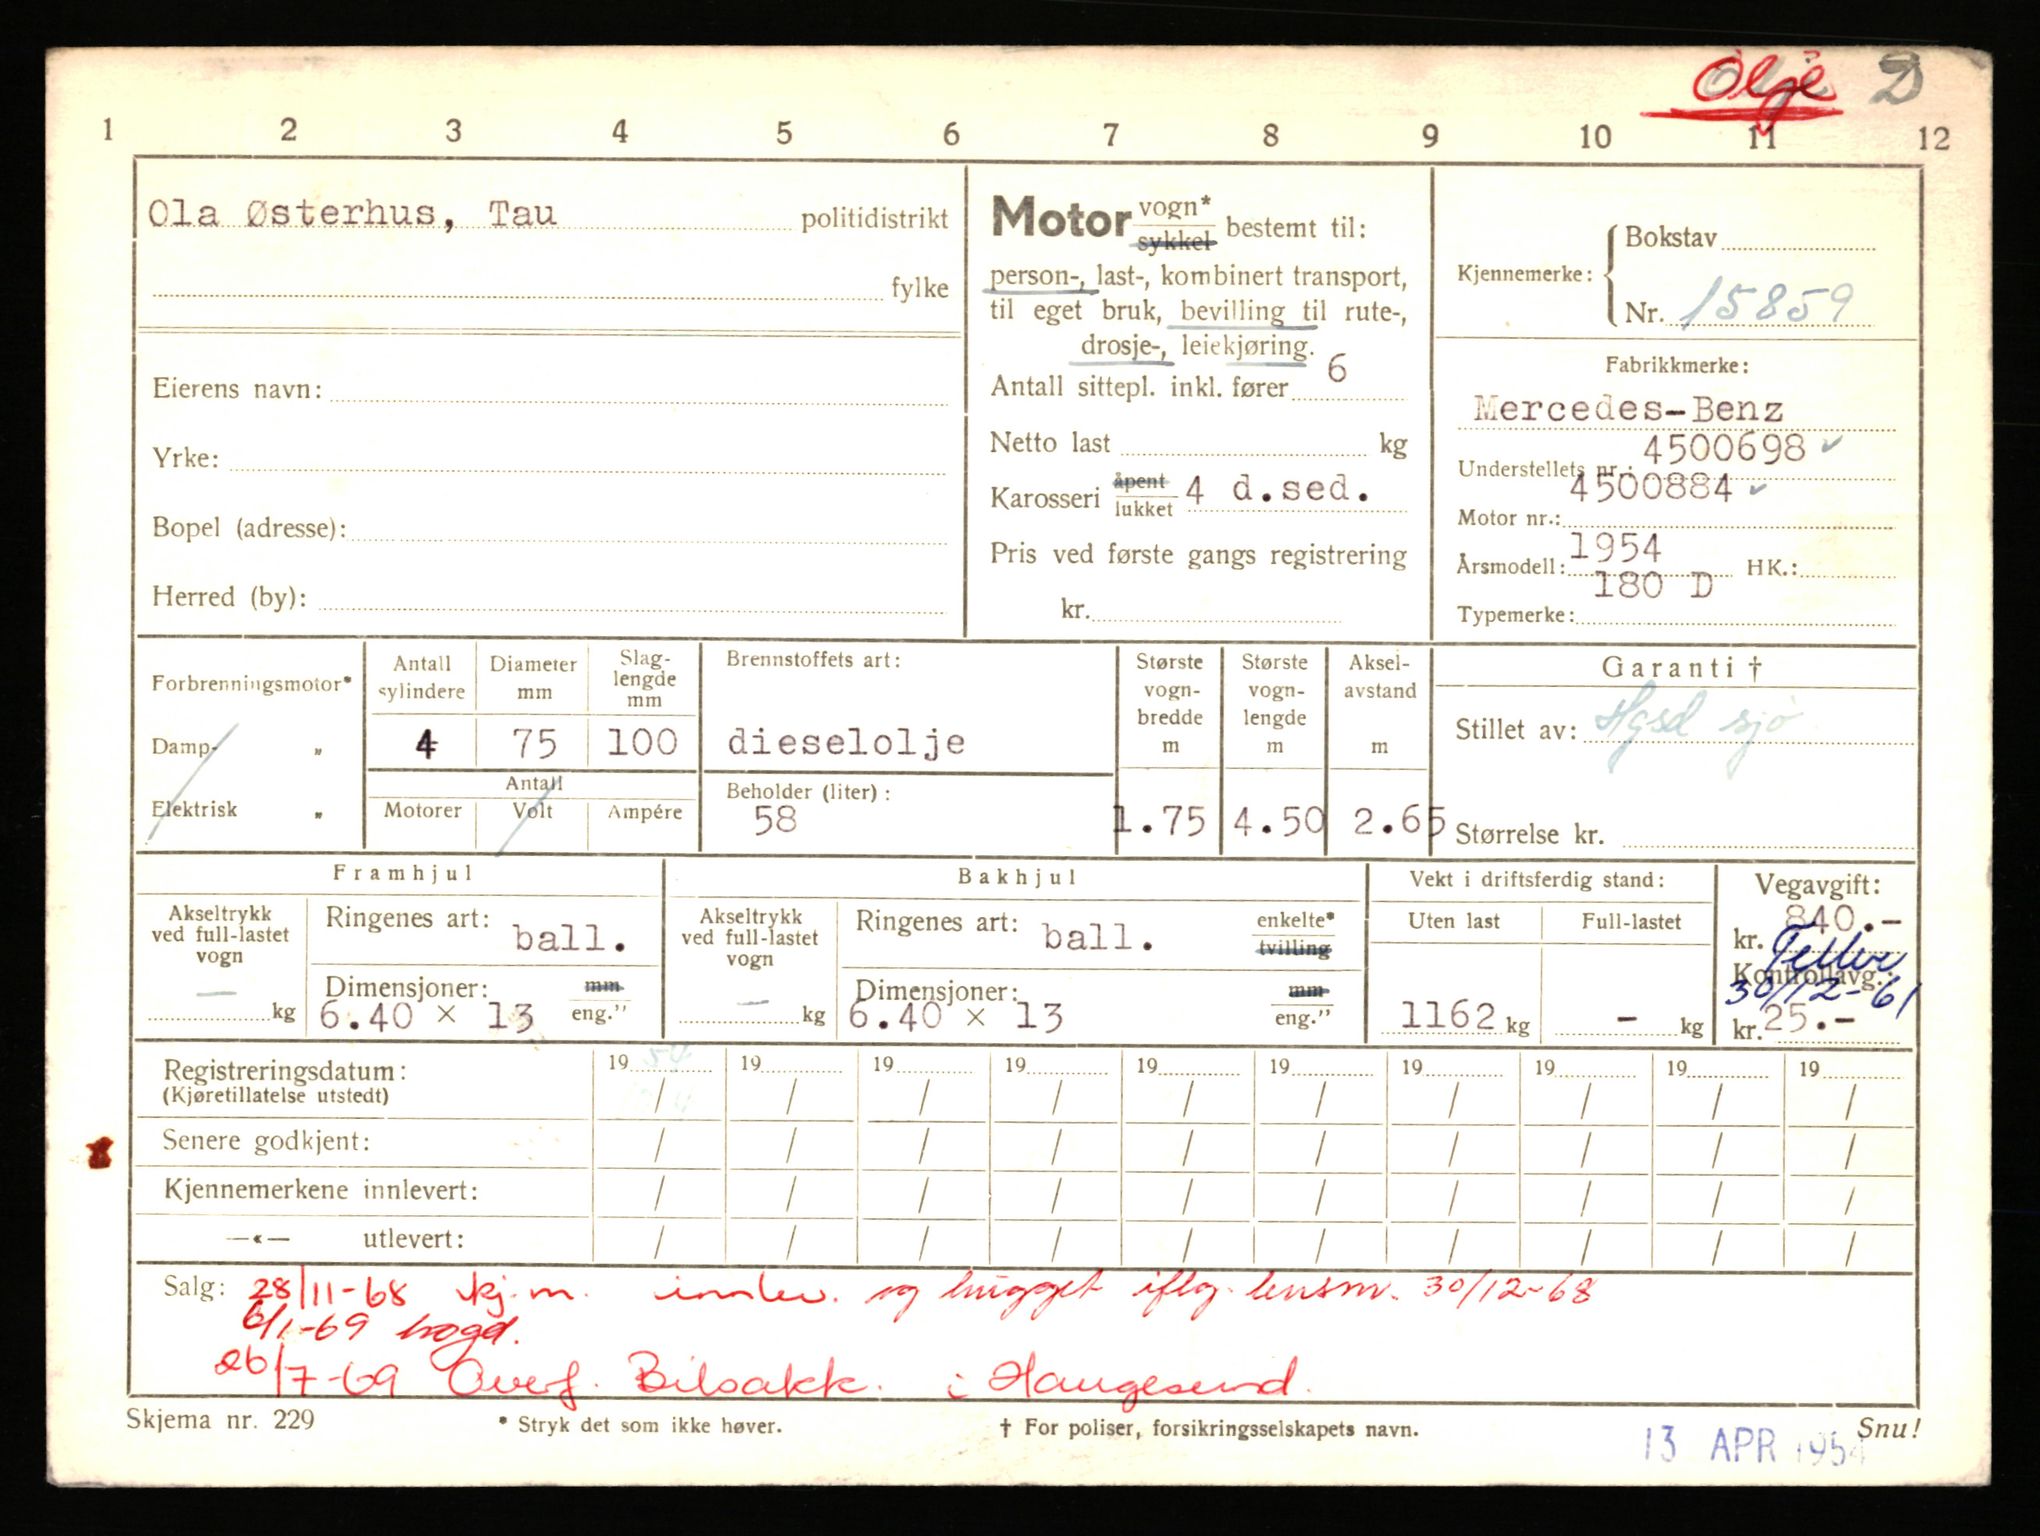 Olje D
1 2 3 4 5 6 7 8 9 10 11 12
Ola Østerhus, Tau politidistrikt
fylke
Eierens navn:
Yrke:
Bopel (adresse):
Herred (by):
Motor vogn* sykkel bestemt til:
person-, last-, kombinert transport,
til eget bruk, bevilling til rute-,
drosje-, leiekjøring.
Antall sittepl. inkl. fører 6
Netto last kg
Karosseri åpent lukket 4 d.sed.
Pris ved første gangs registrering
kr.
Kjennemerke: Bokstav
Nr. 15859
Fabrikkmerke:
Mercedes-Benz
Understellets nr.: 4500698
Motor nr.: 4500884
Årsmodell: 1954 HK.:
Typemerke: 180 D
Forbrenningsmotor*
Damp- „
Elektrisk „
Antall sylindere
4
Diameter mm
75
Slag-
lengde
mm
100
Antall
Motorer Volt Ampére
Brennstoffets art:
dieselolje
Beholder (liter):
58
Største
vogn-
bredde
m
1.75
Største
vogn-
lengde
m
4.50
Aksel-
avstand
m
2.65
Garanti †
Stillet av: Hgsd sjø
Størrelse kr.
Framhjul
Akseltrykk
ved full-lastet
vogn
— kg
Ringenes art: ball.
Dimensjoner: mm
6.40 × 13 eng."
Bakhjul
Akseltrykk
ved full-lastet
vogn
— kg
Ringenes art: ball. enkelte*
tvilling
Dimensjoner: mm
6.40 × 13 eng."
Vekt i driftsferdig stand:
Uten last Full-lastet
1162 kg - kg
Vegavgift:
kr. 840.-
Kontrollavg.:
30/12-61
kr. 25.-
Registreringsdatum: 19 54 19 19 19 19 19 19 19 19 19
(Kjøretillatelse utstedt) / / / / / / / / / /
Senere godkjent: / / / / / / / / / /
Kjennemerkene innlevert: / / / / / / / / / /
—«— utlevert: / / / / / / / / / /
Salg: 28/11-68 kj.m. innlev. og hugget iflg. lensm. 30/12-68
6/1-69
26/7-69 Overf. Bilsakk. i Haugesund.
Skjema nr. 229 * Stryk det som ikke høver. † For poliser, forsikringsselskapets navn. Snu!
13 APR 1954